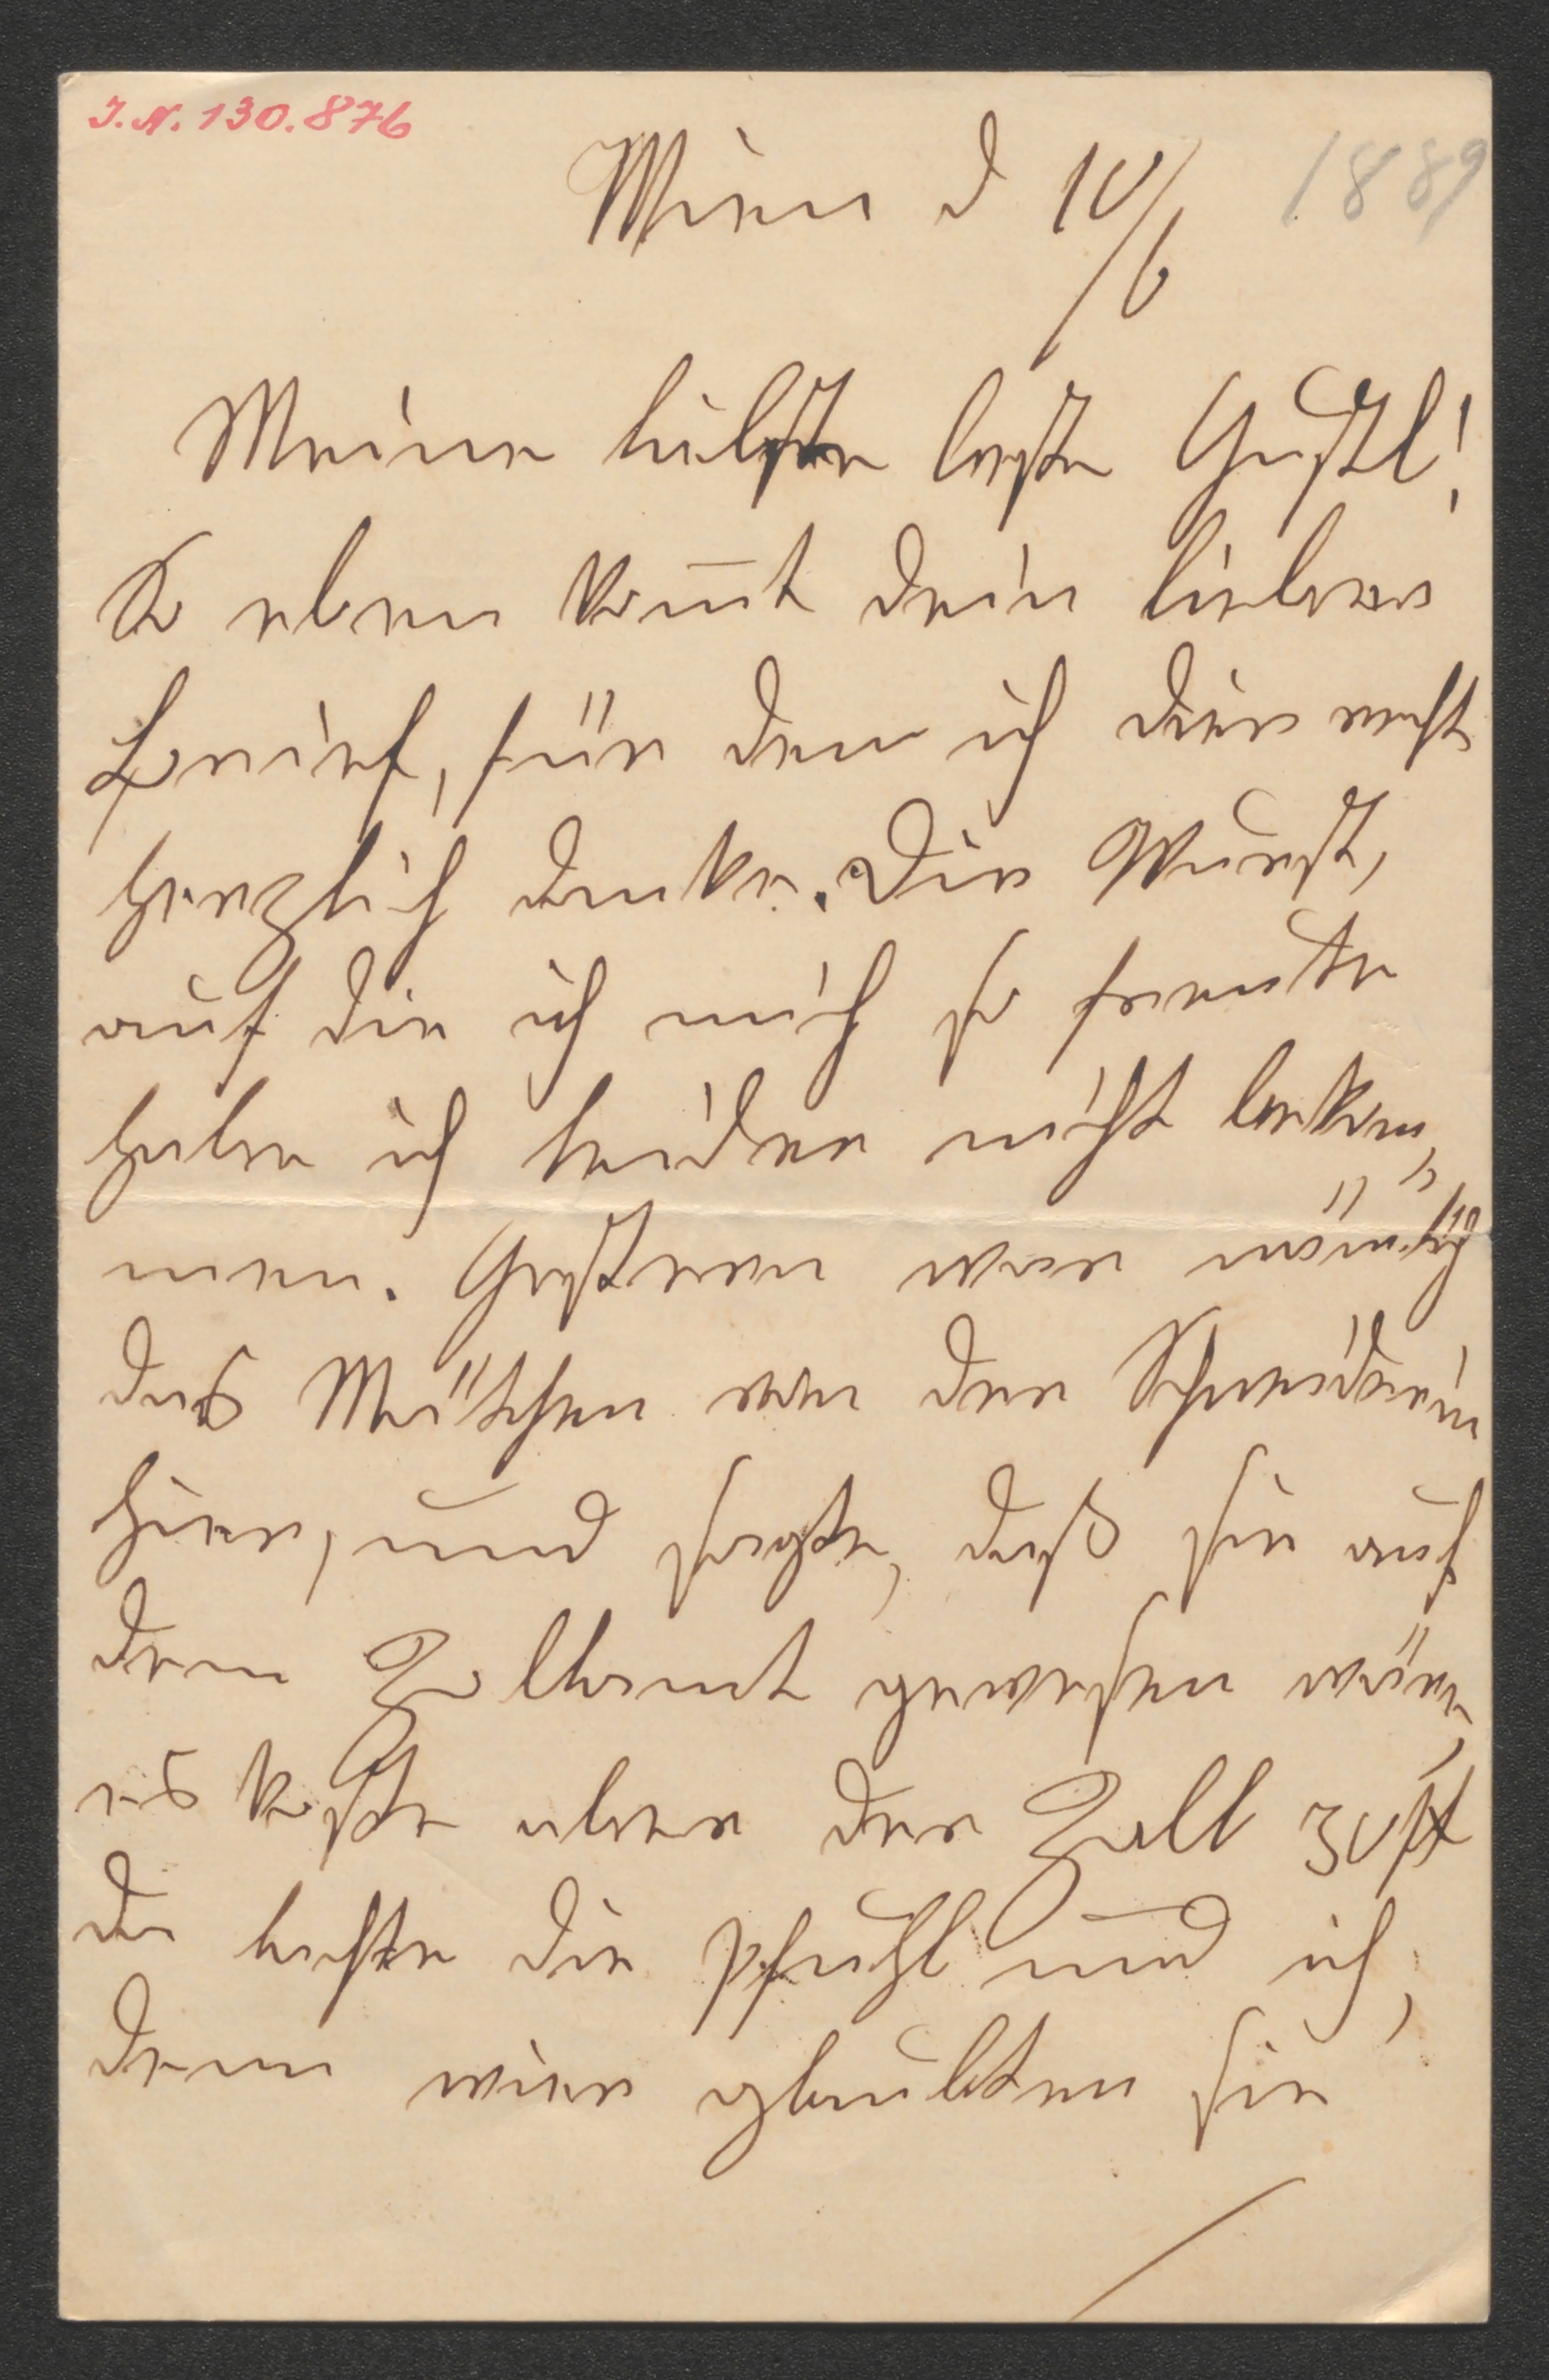 J.N. 130.876
Wien d 10/6 1889
Meine liebste beste Gustl!
So eben kom̄t dein lieber
Brief, für den ich dier recht
herzlich danke. Die Wurst,
auf die ich mich so freute
habe ich leider nicht bekom„
men. Gestern war nämlich
das Mätchen von der Schneiderin
hier, und sagte, daß sie auf
dem Zollamt gewesen wäre,
es koste aber der Zoll 30 ft
da lachte die Pfuhl und ich,
denn wier glaubten sie